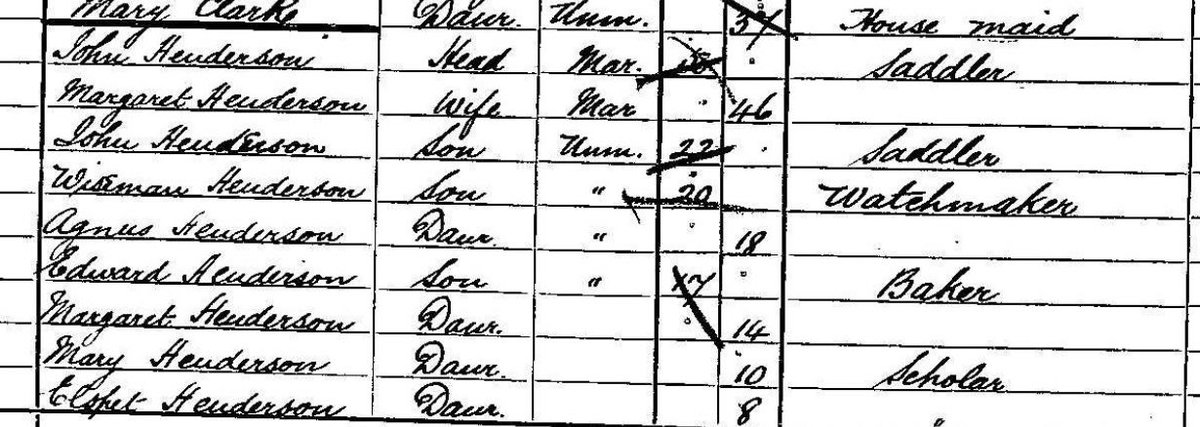 Mary Clarke Daur. Unm. 31 House maid
John Henderson Head Mar. Saddler
Margaret Henderson Wife Mar 46
John Henderson Son Unm. 22 Saddler
Wiseman Henderson Son " 20 Watchmaker
Agnus Henderson Daur. " 18
Edward Henderson Son " 17 Baker
Margaret Henderson Daur. 14
Mary Henderson Daur. 10 Scholar
Elspet Henderson Daur. 8 "